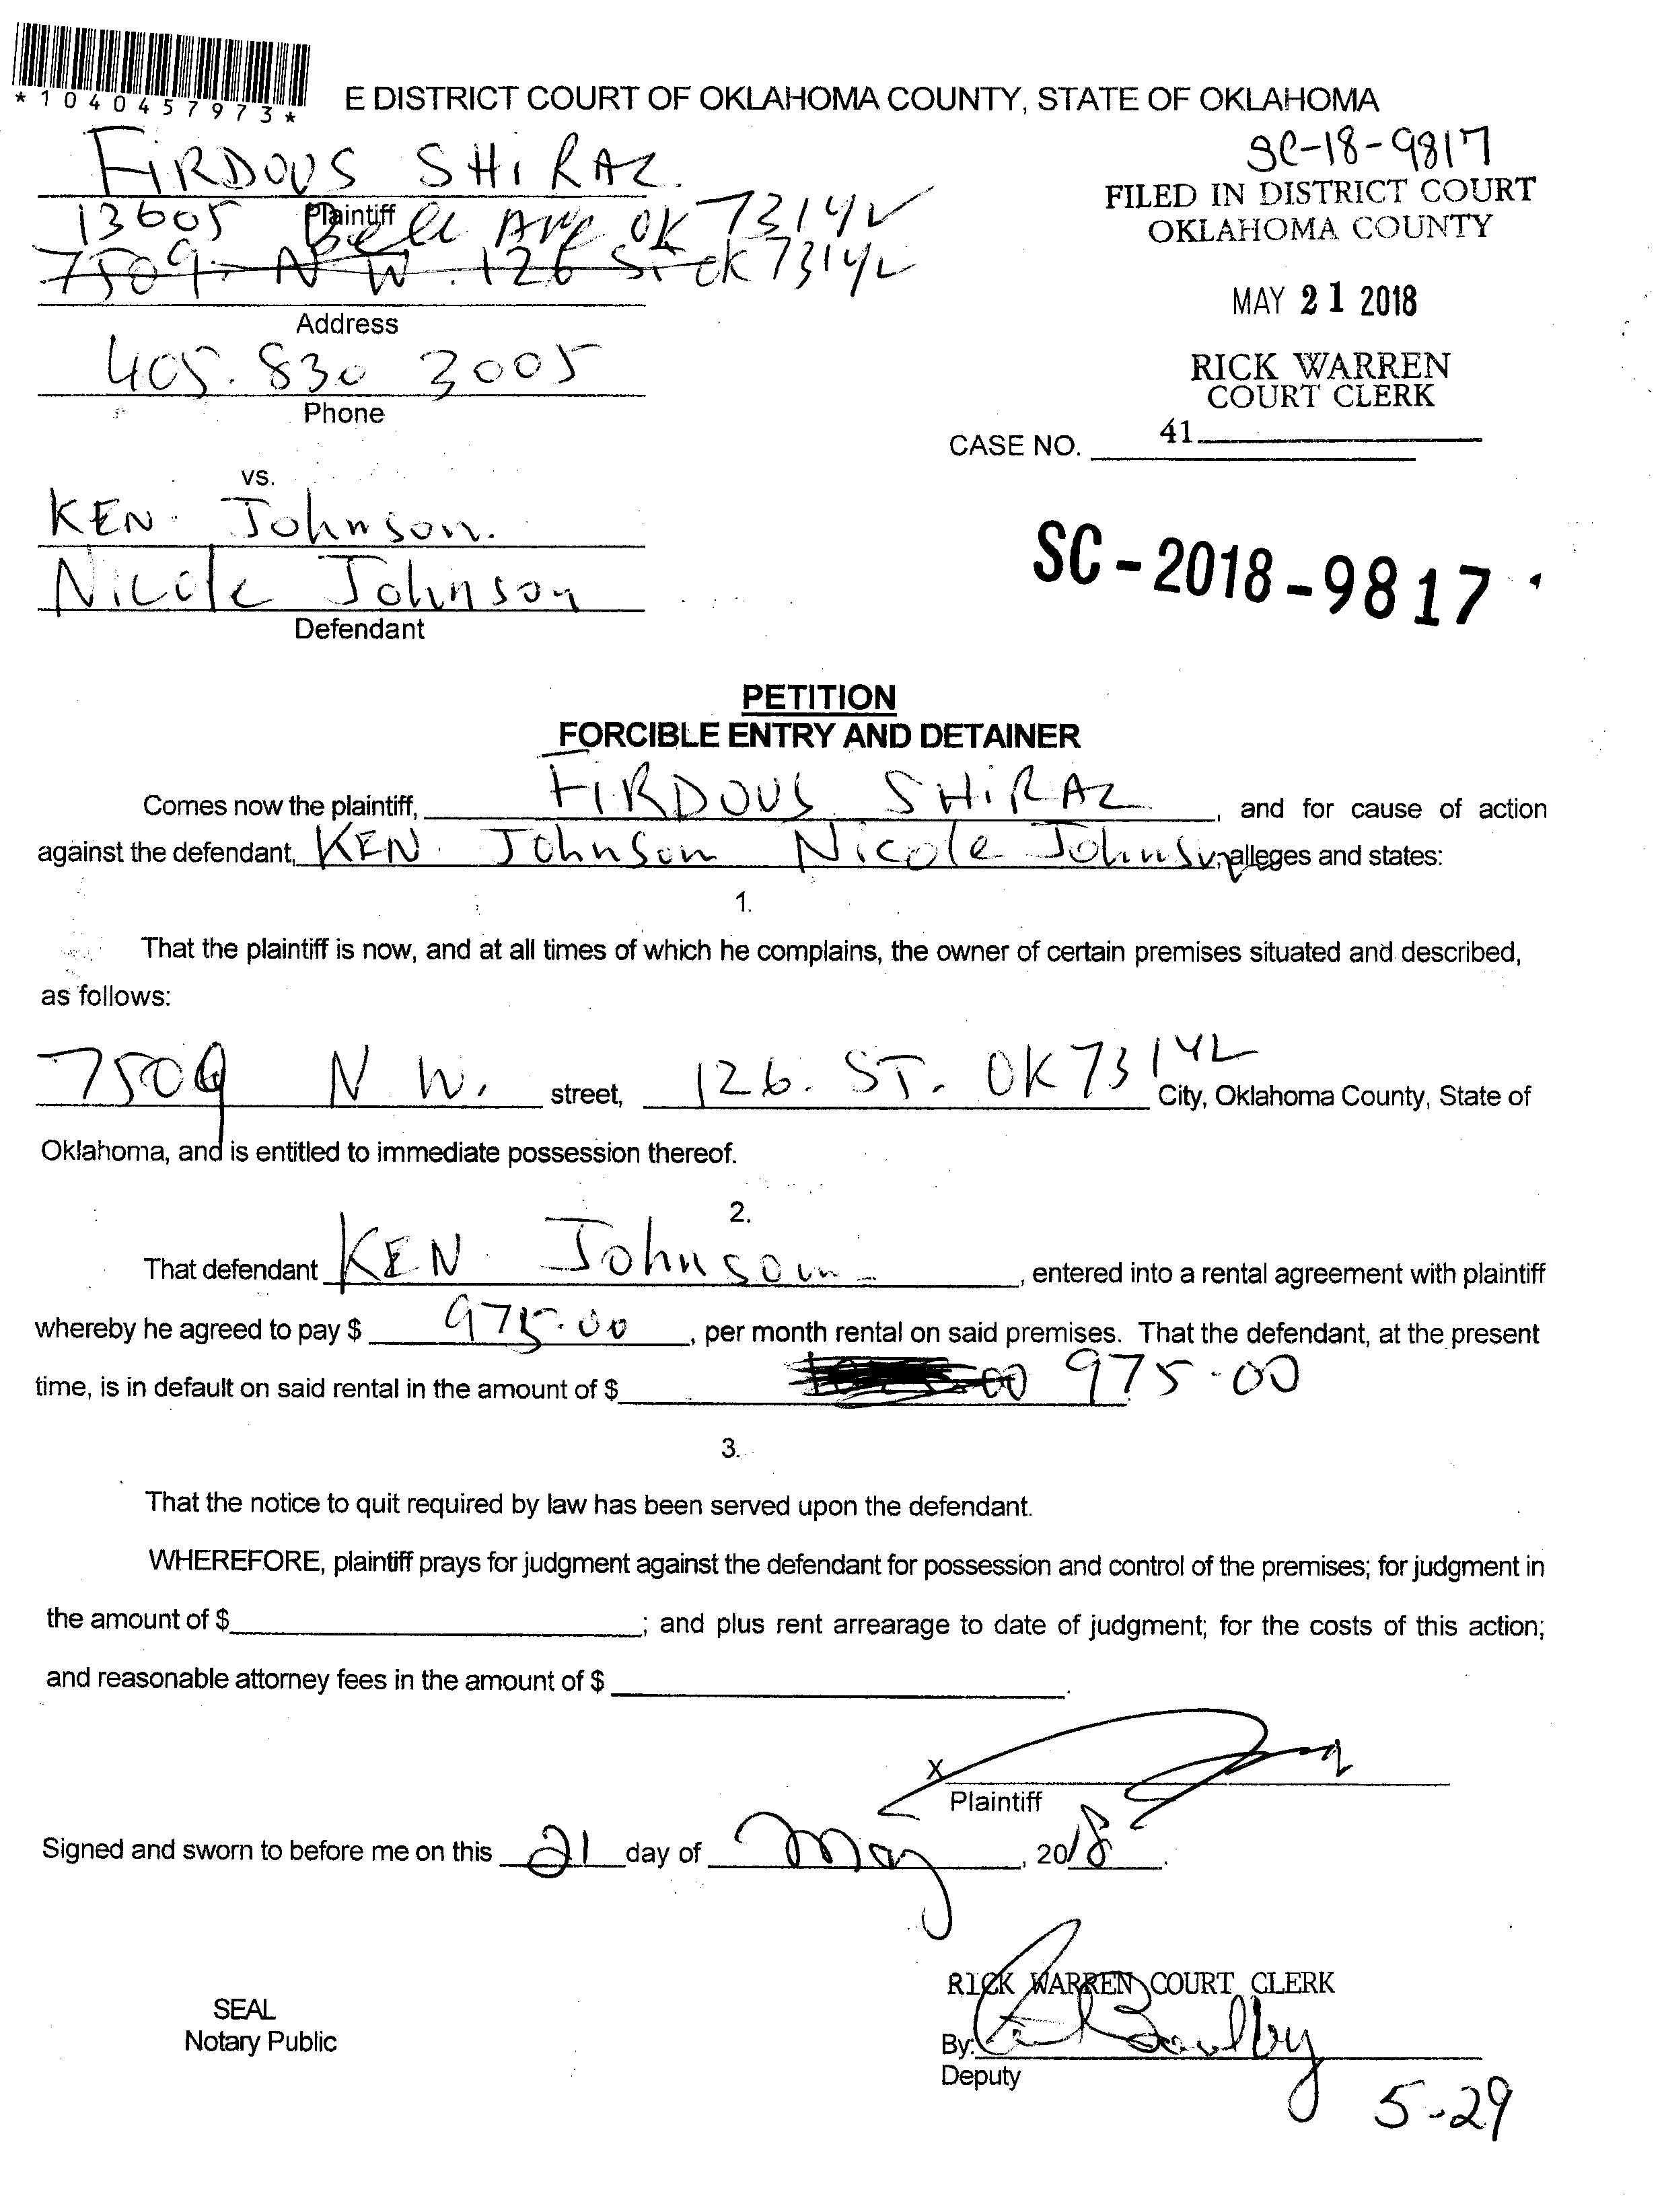 *1040457973*
E DISTRICT COURT OF OKLAHOMA COUNTY, STATE OF OKLAHOMA
FIRDOUS SHIRAZ.
SC-18-9817
Plaintiff
13605 Bell Ave OK 73142
7509. N W. 126 St ok 73142
Address
FILED IN DISTRICT COURT
OKLAHOMA COUNTY
MAY 21 2018
405. 830 3005
Phone
RICK WARREN
COURT CLERK
CASE NO. 41
vs.
KEN Johnson.
Nicole Johnson
Defendant
SC-2018-9817
PETITION
FORCIBLE ENTRY AND DETAINER
Comes now the plaintiff, FIRDOUS SHIRAZ, and for cause of action
against the defendant, KEN Johnson Nicole Johnson, alleges and states:
1.
That the plaintiff is now, and at all times of which he complains, the owner of certain premises situated and described,
as follows:
7509 N W. street, 126. ST. OK 73142 City, Oklahoma County, State of
Oklahoma, and is entitled to immediate possession thereof.
2.
That defendant KEN Johnson, entered into a rental agreement with plaintiff
whereby he agreed to pay $ 975.00, per month rental on said premises. That the defendant, at the present
time, is in default on said rental in the amount of $ 00 975.00
3.
That the notice to quit required by law has been served upon the defendant.
WHEREFORE, plaintiff prays for judgment against the defendant for possession and control of the premises; for judgment in
the amount of $ ; and plus rent arrearage to date of judgment; for the costs of this action;
and reasonable attorney fees in the amount of $ .
X
Plaintiff
Signed and sworn to before me on this 21 day of May, 2018.
RICK WARREN COURT CLERK
SEAL
Notary Public
By:
Deputy
5-29